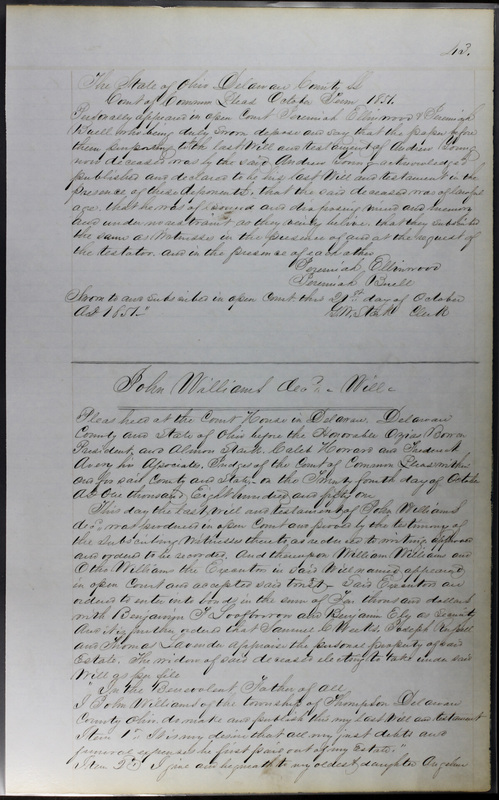 43.
The State of Ohio Delaware County SS
Court of Common Pleas October Term 1851.
Personally appeared in open Court Jeremiah Ellinwood & Jeremiah
Buell who being duly sworn depose and say that the paper before
them purporting to be the last Will and testament of Andrew
now deceased was by the said Andrew acknowledged
published and declared to be his last Will and testament in the
presence of these deponents, that the said deceased was of lawful
age, that he was of sound and disposing mind and memory
and under no restraint as they verily believe that they subscribed
the same as Witnesses in the presence of and at the request of
the testator and in the presence of each other
Jeremiah Ellinwood
Jeremiah Buell
Sworn to and subscribed in open Court this 21st day of October
AD 1851
G.W. Stark Clerk
John Williams Decd. Will
Pleas held at the Court House in Delaware, Delaware
County and State of Ohio before the Honorable Ozias Bowen
President, and Almon Stark, Caleb Howard and Frederick
Avery his Associates, Judges of the Court of Common Pleas within
and for said County and State, on the Twenty fourth day of October
AD One thousand Eight hundred and fifty one
This day the last Will and testament of John Williams
decd. was produced in open Court and proved by the testimony of
the Subscribing Witnesses thereto, as reduced to writing
and ordered to be recorded. And thereupon William Williams and
Otho Williams the Executors in said Will named appeared
in open Court and accepted said trust. Said Executors are
ordered to enter into bonds in the sum of Ten thousand dollars
with Benjamin F Loofbourrow and Benjamin Ely as Security
And it is further ordered that Samuel C Joseph Russell
and Thomas appraise the personal property of said
Estate. The widow of said deceased electing to take under said
Will as per file
"In the Benevolent Father of all
I John Williams of the township of Thompson Delaware
County Ohio do make and publish this my last Will and testament
Item 1st. It is my desire that all my just debts and
funeral expenses be first paid out of my Estate."
Item 2nd I give and bequeath to my oldest daughter